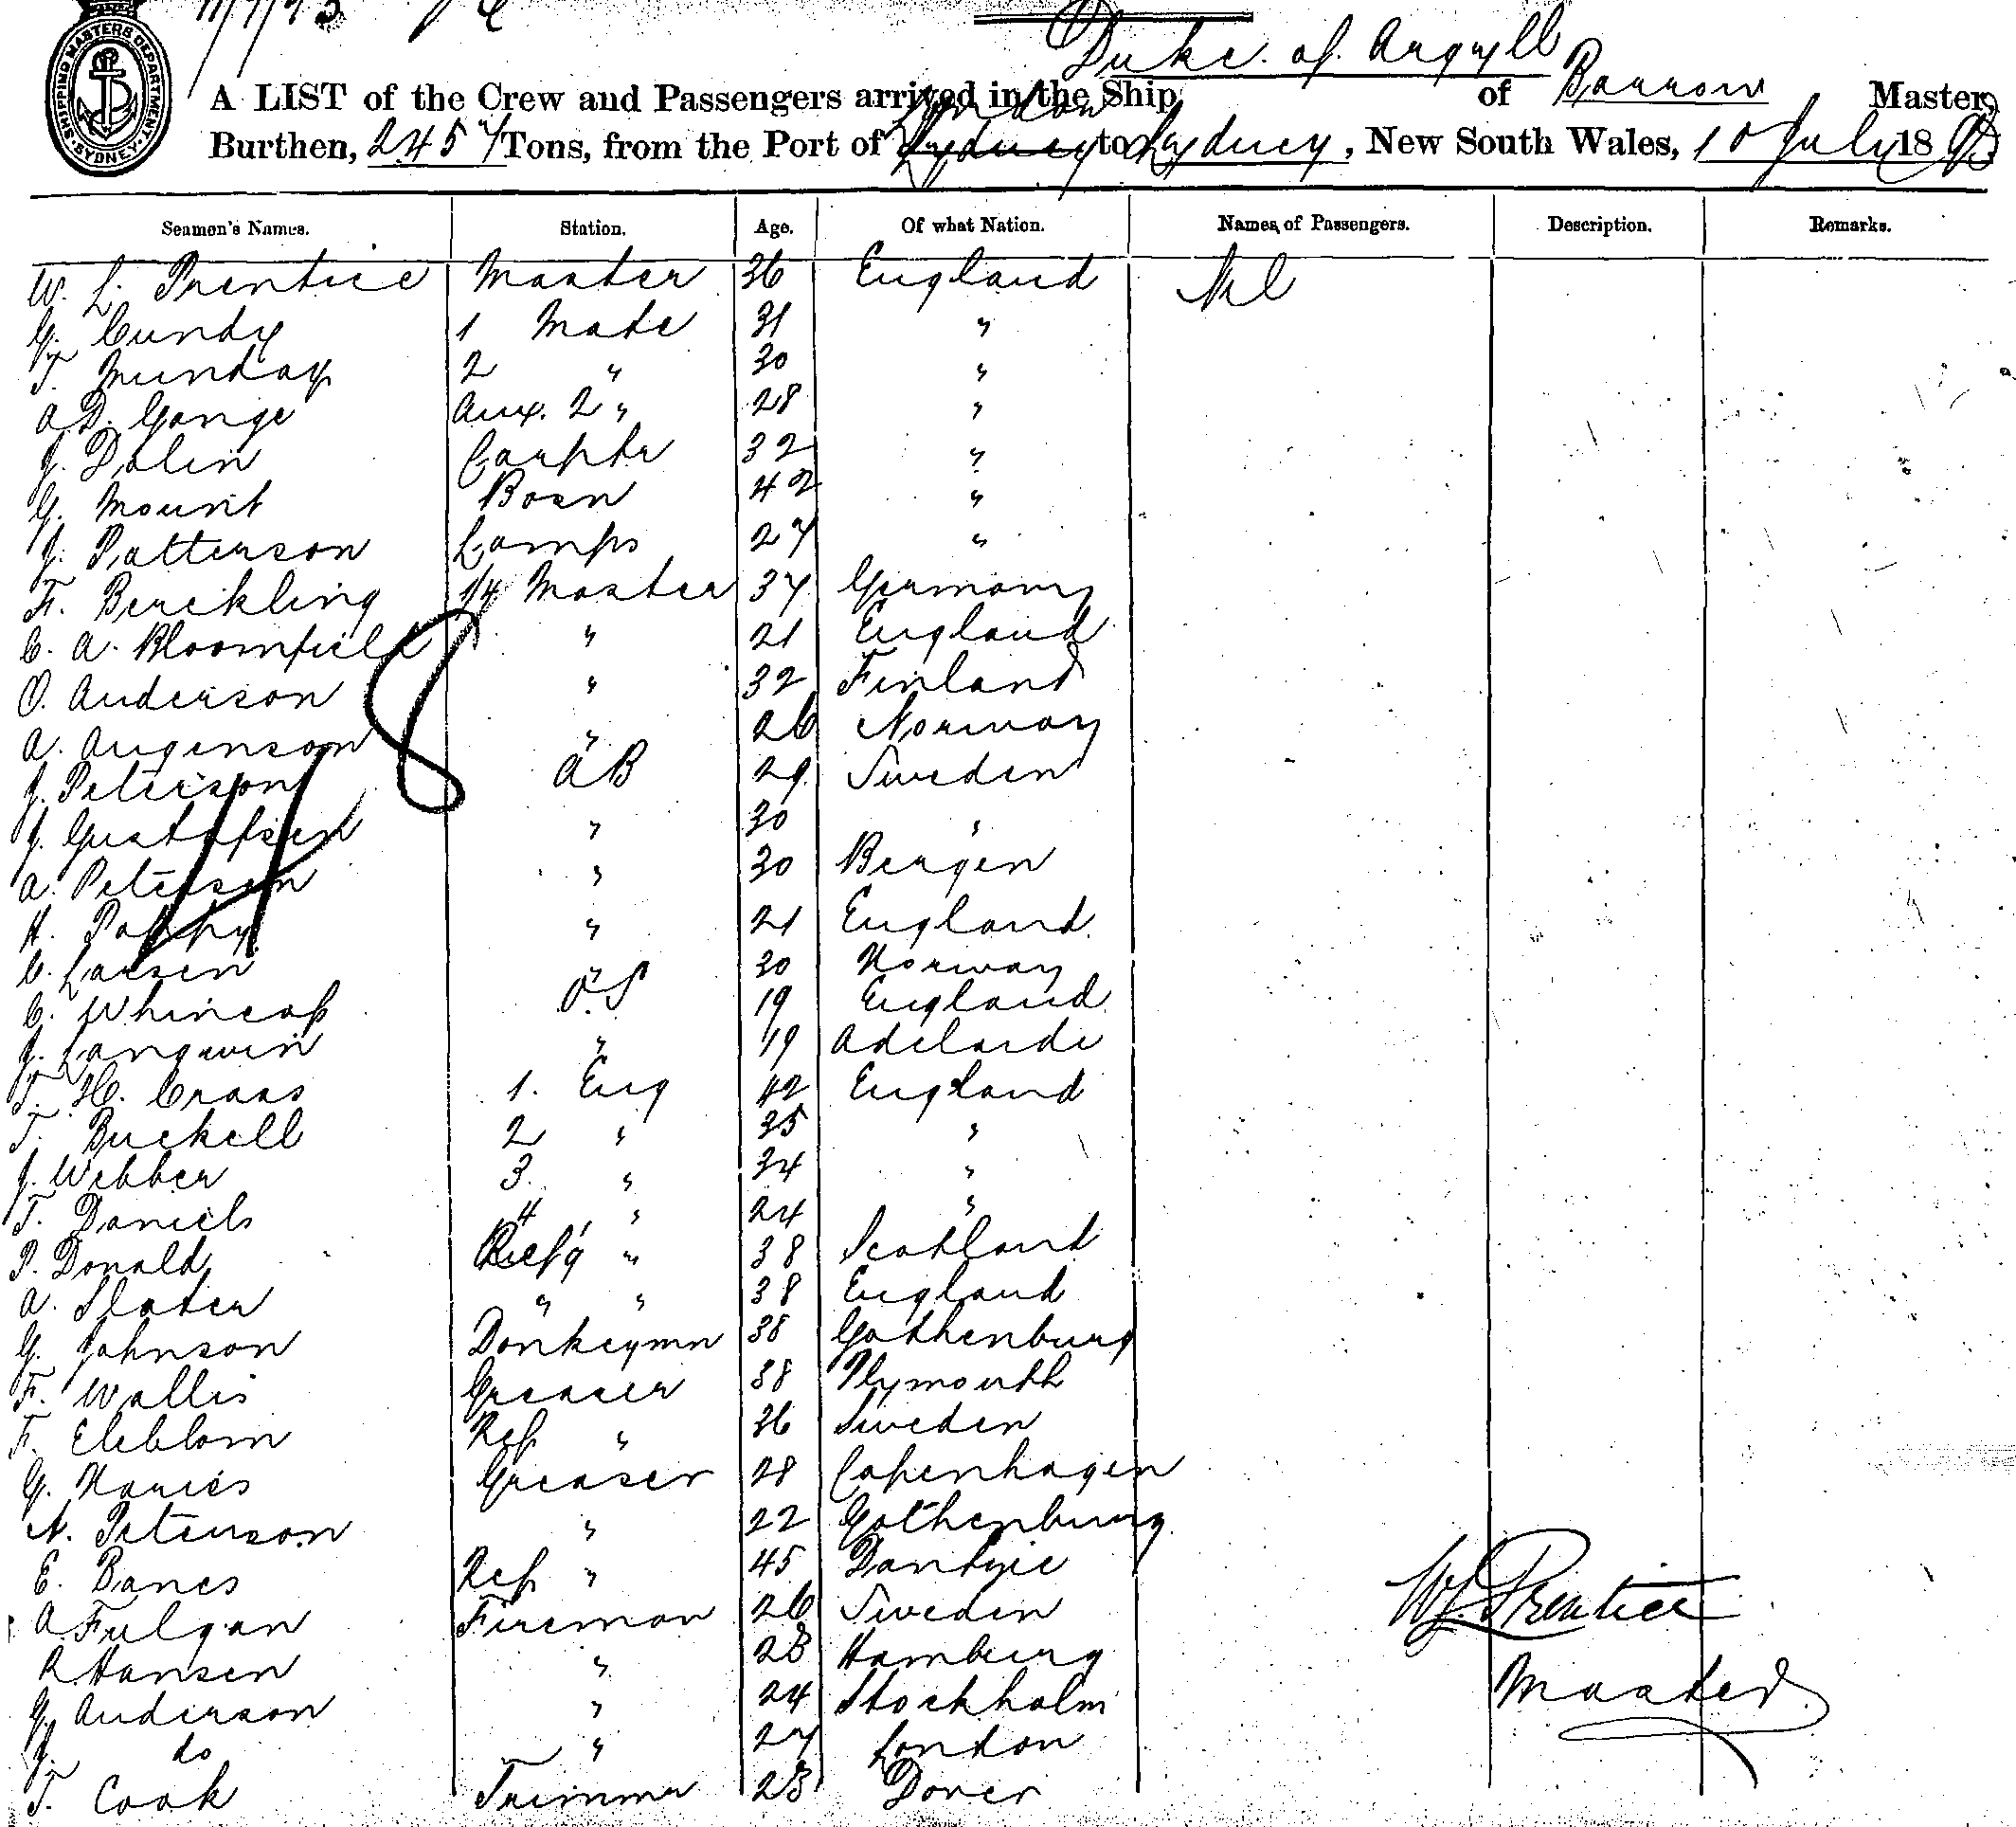 11/7/93
SHIPPING MASTERS DEPARTMENT · SYDNEY ·
Duke of Argyll
A LIST of the Crew and Passengers arrived in the Ship of Barrow Master,
London
Burthen, 2457 Tons, from the Port of Sydney to Sydney, New South Wales, 10 July 1893
Seamen's Names. Station. Age. Of what Nation. Names of Passengers. Description. Remarks.
W. L. Prentice Master 36 England Nil
G. Cundy 1 Mate 31 "
T. Munday 2 " 30 "
A. D. Gonge Aux. 2 " 28 "
J. Dolin Carptr 32 "
G. Mount Bosn 42 "
J. Patterson Lamps 27 "
F. Bereckling 1/4 Master 37 Germany
C. A. Bloomfield " 21 England
O. Anderson " 32 Finland
A. Augenson " 26 Norway
J. Peterson AB 29 Sweden
J. Gustafsen " 30 "
A. Petersen " 30 Bergen
H. " 21 England
C. Larsen " 30 Norway
C. Whincop OS 19 England
J. Langwin " 19 Adelaide
T. H. Crass 1. Eng 42 England
T. Buckell 2 " 35 "
J. Webber 3. " 34 "
T. Daniels 4 " 24 "
P. Donald Refg " 38 Scotland
A. Slater " " 38 England
G. Johnson Donkeymn 38 Gothenburg
F. Wallis Greaser 38 Plymouth
F. Ekblom Ref " 36 Sweden
G. Greaser 28 Copenhagen
N. Peterson " 22 Gothenburg
E. Banes Ref " 45 Dantzic
A. Fulgan Fireman 26 Sweden
R. Hansen " 28 Hamburg
G. Anderson " 24 Stockholm
J. do " 27 London
T. Cook Trimmer 28 Dover
W. L. Prentice
Master